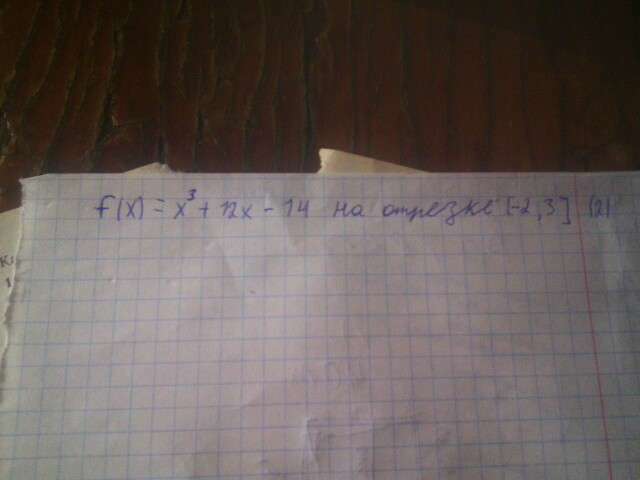 f(x) = x³ + 12x - 14 на отрезке [-2,3] (2)